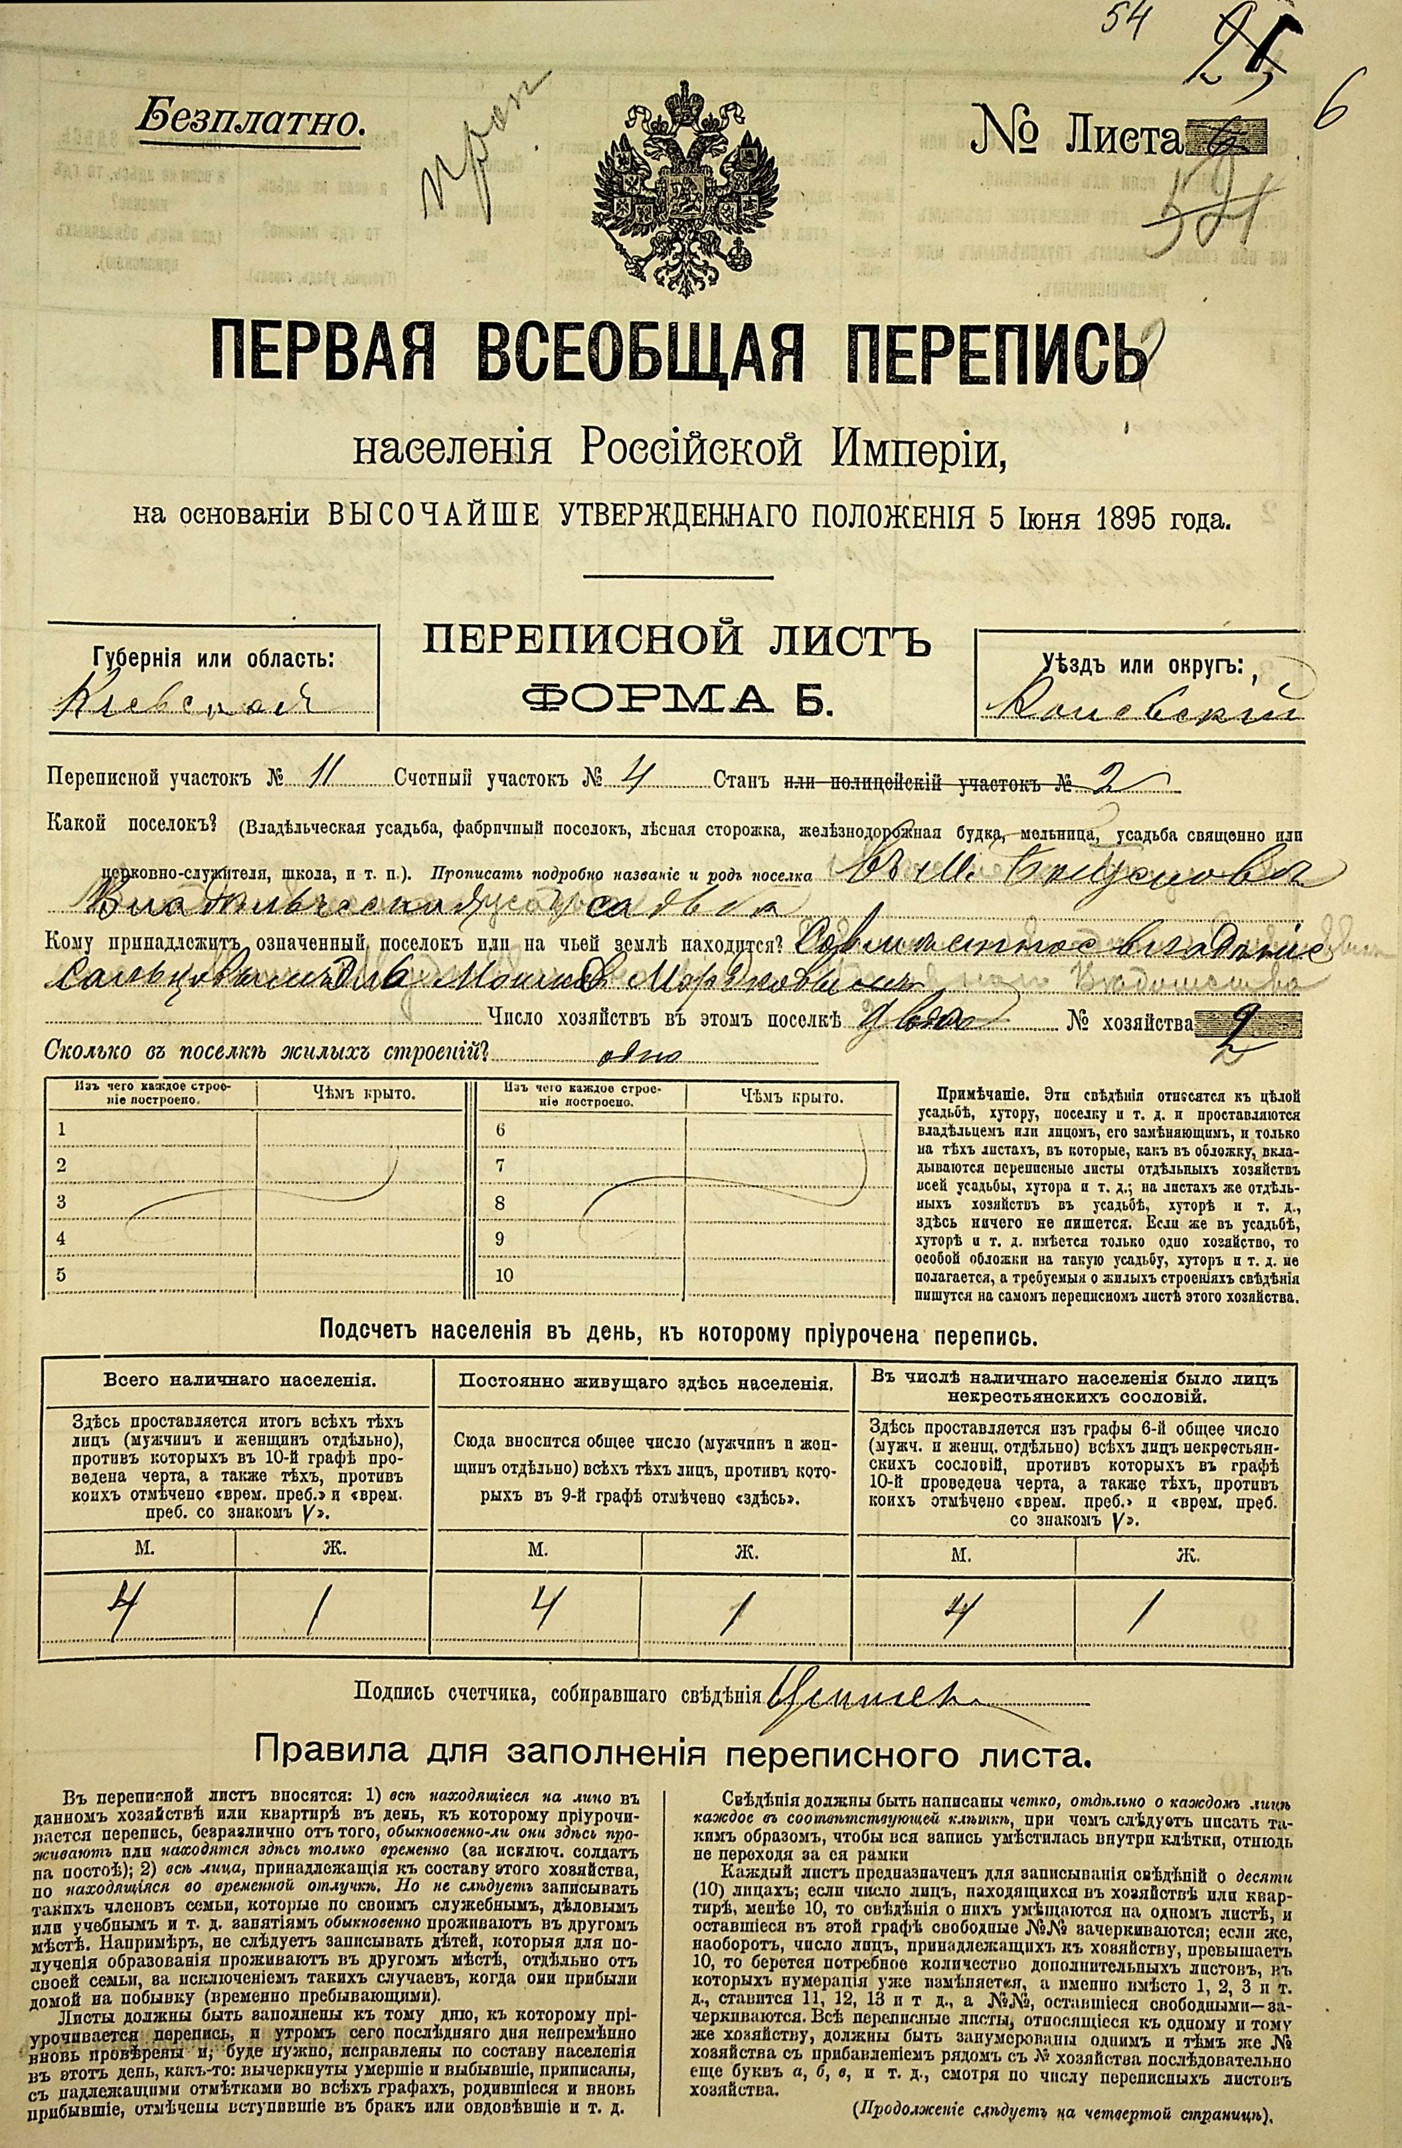 54
6
Безплатно.
№ Листа
ПЕРВАЯ ВСЕОБЩАЯ ПЕРЕПИСЬ
населенія Россійской Имперіи,
на основаніи ВЫСОЧАЙШЕ УТВЕРЖДЕННАГО ПОЛОЖЕНІЯ 5 Іюня 1895 года.
Губернія или область:
Кіевская
ПЕРЕПИСНОЙ ЛИСТЪ
ФОРМА Б.
Уѣздъ или округъ:
Каневскій
Переписной участокъ № 11 Счетный участокъ № 4 Станъ или полицейскій участокъ № 2
Какой поселокъ? (Владѣльческая усадьба, фабричный поселокъ, лѣсная сторожка, желѣзнодорожная будка, мельница, усадьба священно или
церковно-служителя, школа, и т. п.). Прописать подробно названіе и родъ поселка Въ м.
Владѣльческая усадьба
Кому принадлежитъ означенный поселокъ или на чьей землѣ находится? владѣніе
Число хозяйствъ въ этомъ поселкѣ два № хозяйства 2
Сколько въ поселкѣ жилыхъ строеній? одно
Изъ чего каждое строе-
ніе построено.
Чѣмъ крыто.
Изъ чего каждое строе-
ніе построено.
Чѣмъ крыто.
1 6
2 7
3 8
4 9
5 10
Примѣчаніе. Эти свѣдѣнія относятся къ цѣлой
усадьбѣ, хутору, поселку и т. д. и проставляются
владѣльцемъ или лицомъ, его замѣняющимъ, и только
на тѣхъ листахъ, въ которые, какъ въ обложку, вкла-
дываются переписные листы отдѣльныхъ хозяйствъ
всей усадьбы, хутора и т. д.; на листахъ же отдѣль-
ныхъ хозяйствъ въ усадьбѣ, хуторѣ и т. д.,
здѣсь ничего не пишется. Если же въ усадьбѣ,
хуторѣ и т. д. имѣется только одно хозяйство, то
особой обложки на такую усадьбу, хуторъ и т. д. не
полагается, а требуемыя о жилыхъ строеніяхъ свѣдѣнія
пишутся на самомъ переписномъ листѣ этого хозяйства.
Подсчетъ населенія въ день, къ которому пріурочена перепись.
Всего наличнаго населенія.
Здѣсь проставляется итогъ всѣхъ тѣхъ
лицъ (мужчинъ и женщинъ отдѣльно),
противъ которыхъ въ 10-й графѣ про-
ведена черта, а также тѣхъ, противъ
коихъ отмѣчено «врем. преб.» и «врем.
преб. со знакомъ V».
Постоянно живущаго здѣсь населенія.
Сюда вносится общее число (мужчинъ и жен-
щинъ отдѣльно) всѣхъ тѣхъ лицъ, противъ кото-
рыхъ въ 9-й графѣ отмѣчено «здѣсь».
Въ числѣ наличнаго населенія было лицъ
некрестьянскихъ сословій.
Здѣсь проставляется изъ графы 6-й общее число
(мужч. и женщ. отдѣльно) всѣхъ лицъ некрестьян-
скихъ сословій, противъ которыхъ въ графѣ
10-й проведена черта, а также тѣхъ, противъ
коихъ отмѣчено «врем. преб.» и «врем. преб.
со знакомъ V».
М. Ж. М. Ж. М. Ж.
4 1 4 1 4 1
Подпись счетчика, собиравшаго свѣдѣнія
Правила для заполненія переписного листа.
Въ переписной листъ вносятся: 1) всѣ находящіеся на лицо въ
данномъ хозяйствѣ или квартирѣ въ день, къ которому пріурочи-
вается перепись, безразлично отъ того, обыкновенно-ли они здѣсь про-
живаютъ или находятся здѣсь только временно (за исключ. солдатъ
на постоѣ); 2) всѣ лица, принадлежащія къ составу этого хозяйства,
но находящіяся во временной отлучкѣ. Но не слѣдуетъ записывать
такихъ членовъ семьи, которые по своимъ служебнымъ, дѣловымъ
или учебнымъ и т. д. занятіямъ обыкновенно проживаютъ въ другомъ
мѣстѣ. Напримѣръ, не слѣдуетъ записывать дѣтей, которыя для по-
лученія образованія проживаютъ въ другомъ мѣстѣ, отдѣльно отъ
своей семьи, за исключеніемъ такихъ случаевъ, когда они прибыли
домой на побывку (временно пребывающими).
Листы должны быть заполнены къ тому дню, къ которому прі-
урочивается перепись, и утромъ сего послѣдняго дня непремѣнно
вновь провѣрены и, буде нужно, исправлены по составу населенія
въ этотъ день, какъ-то: вычеркнуты умершіе и выбывшіе, приписаны,
съ надлежащими отмѣтками во всѣхъ графахъ, родившіеся и вновь
прибывшіе, отмѣчены вступившіе въ бракъ или овдовѣвшіе и т. д.
Свѣдѣнія должны быть написаны четко, отдѣльно о каждомъ лицѣ
каждое въ соотвѣтствующей клѣткѣ, при чемъ слѣдуетъ писать та-
кимъ образомъ, чтобы вся запись умѣстилась внутри клѣтки, отнюдь
не переходя за ея рамки
Каждый листъ предназначенъ для записыванія свѣдѣній о десяти
(10) лицахъ; если число лицъ, находящихся въ хозяйствѣ или квар-
тирѣ, менѣе 10, то свѣдѣнія о нихъ умѣщаются на одномъ листѣ, и
оставшіеся въ этой графѣ свободные №№ зачеркиваются; если же,
наоборотъ, число лицъ, принадлежащихъ къ хозяйству, превышаетъ
10, то берется потребное количество дополнительныхъ листовъ, въ
которыхъ нумерація уже измѣняется, а именно вмѣсто 1, 2, 3 и т.
д., ставится 11, 12, 13 и т д., а №№, оставшіеся свободными—за-
черкиваются. Всѣ переписные листы, относящіеся къ одному и тому
же хозяйству, должны быть занумерованы однимъ и тѣмъ же №
хозяйства съ прибавленіемъ рядомъ съ № хозяйства послѣдовательно
еще буквъ а, б, в, и т. д., смотря по числу переписныхъ листовъ
хозяйства.
(Продолженіе слѣдуетъ на четвертой страницѣ).